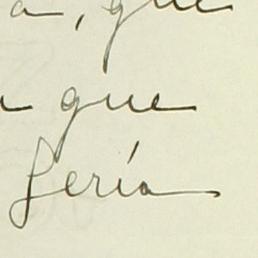 a, que
a que
sería